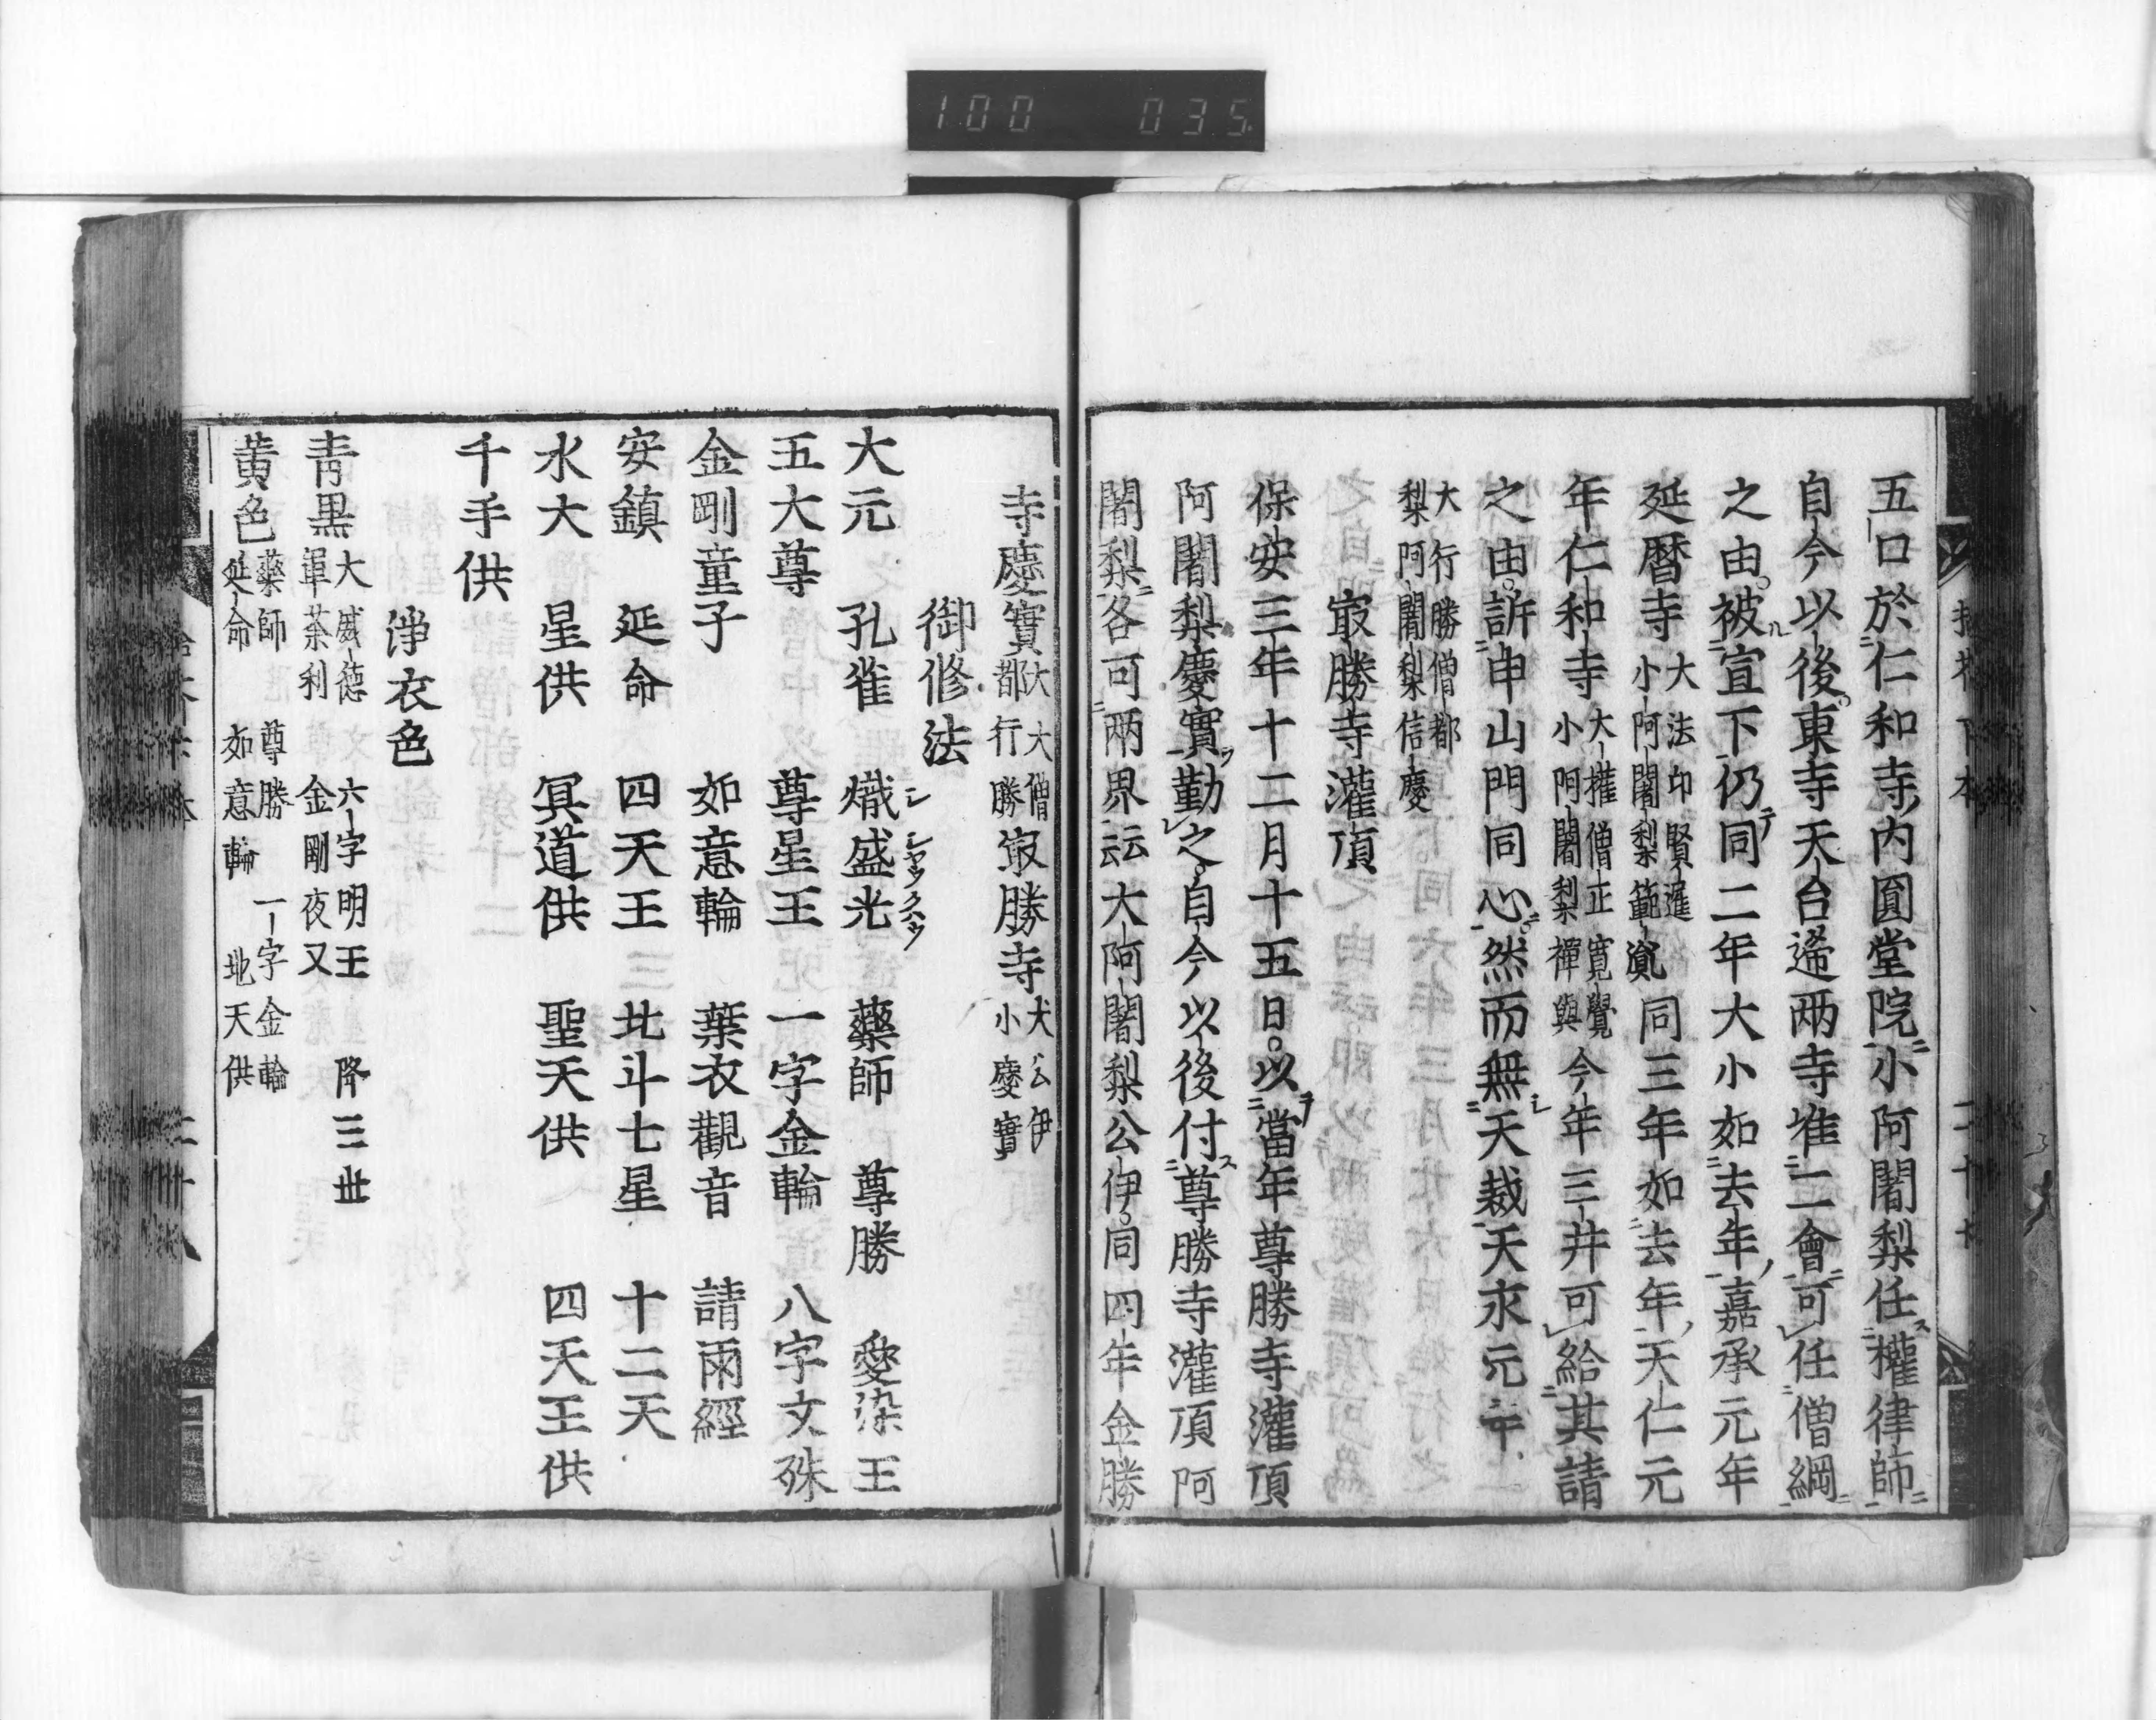 100 035
五口於仁和寺内圓堂院小阿闍梨任權律師
自今以後東寺天台遙兩寺准二會可任僧綱
之由被宣下仍同二年大小如去年嘉承元年
延暦寺 大法印賢暹 小阿闍梨範 同三年如去年天仁元
年仁和寺 大權僧正寛覺 小阿闍梨禪與 今年三井可給其請
之由訴申山門同心然而無天裁天永元年
大行勝僧都
梨阿闍梨信慶
㝡勝寺灌頂
保安三年十二月十五日以當年尊勝寺灌頂
阿闍梨慶實勤之自今以後付尊勝寺灌頂阿
闍梨各可兩界云云大阿闍梨公伊同四年金勝
寺慶實 大大僧 都行勝 㝡勝寺 大公伊 小慶實
御修法
大元 孔雀 熾盛光 藥師 尊勝 愛染王
五大尊 尊星王 一字金輪 八字文殊
金剛童子 如意輪 葉衣觀音 請雨經
安鎮 延命 四天王 北斗七星 十二天
水大 星供 冥道供 聖天供 四天王供
千手供
淨衣色
青黒 大威德 六字明王 降三世
軍荼利 金剛夜叉
黄色 藥師 尊勝 一字金輪
延命 如意輪 地天供